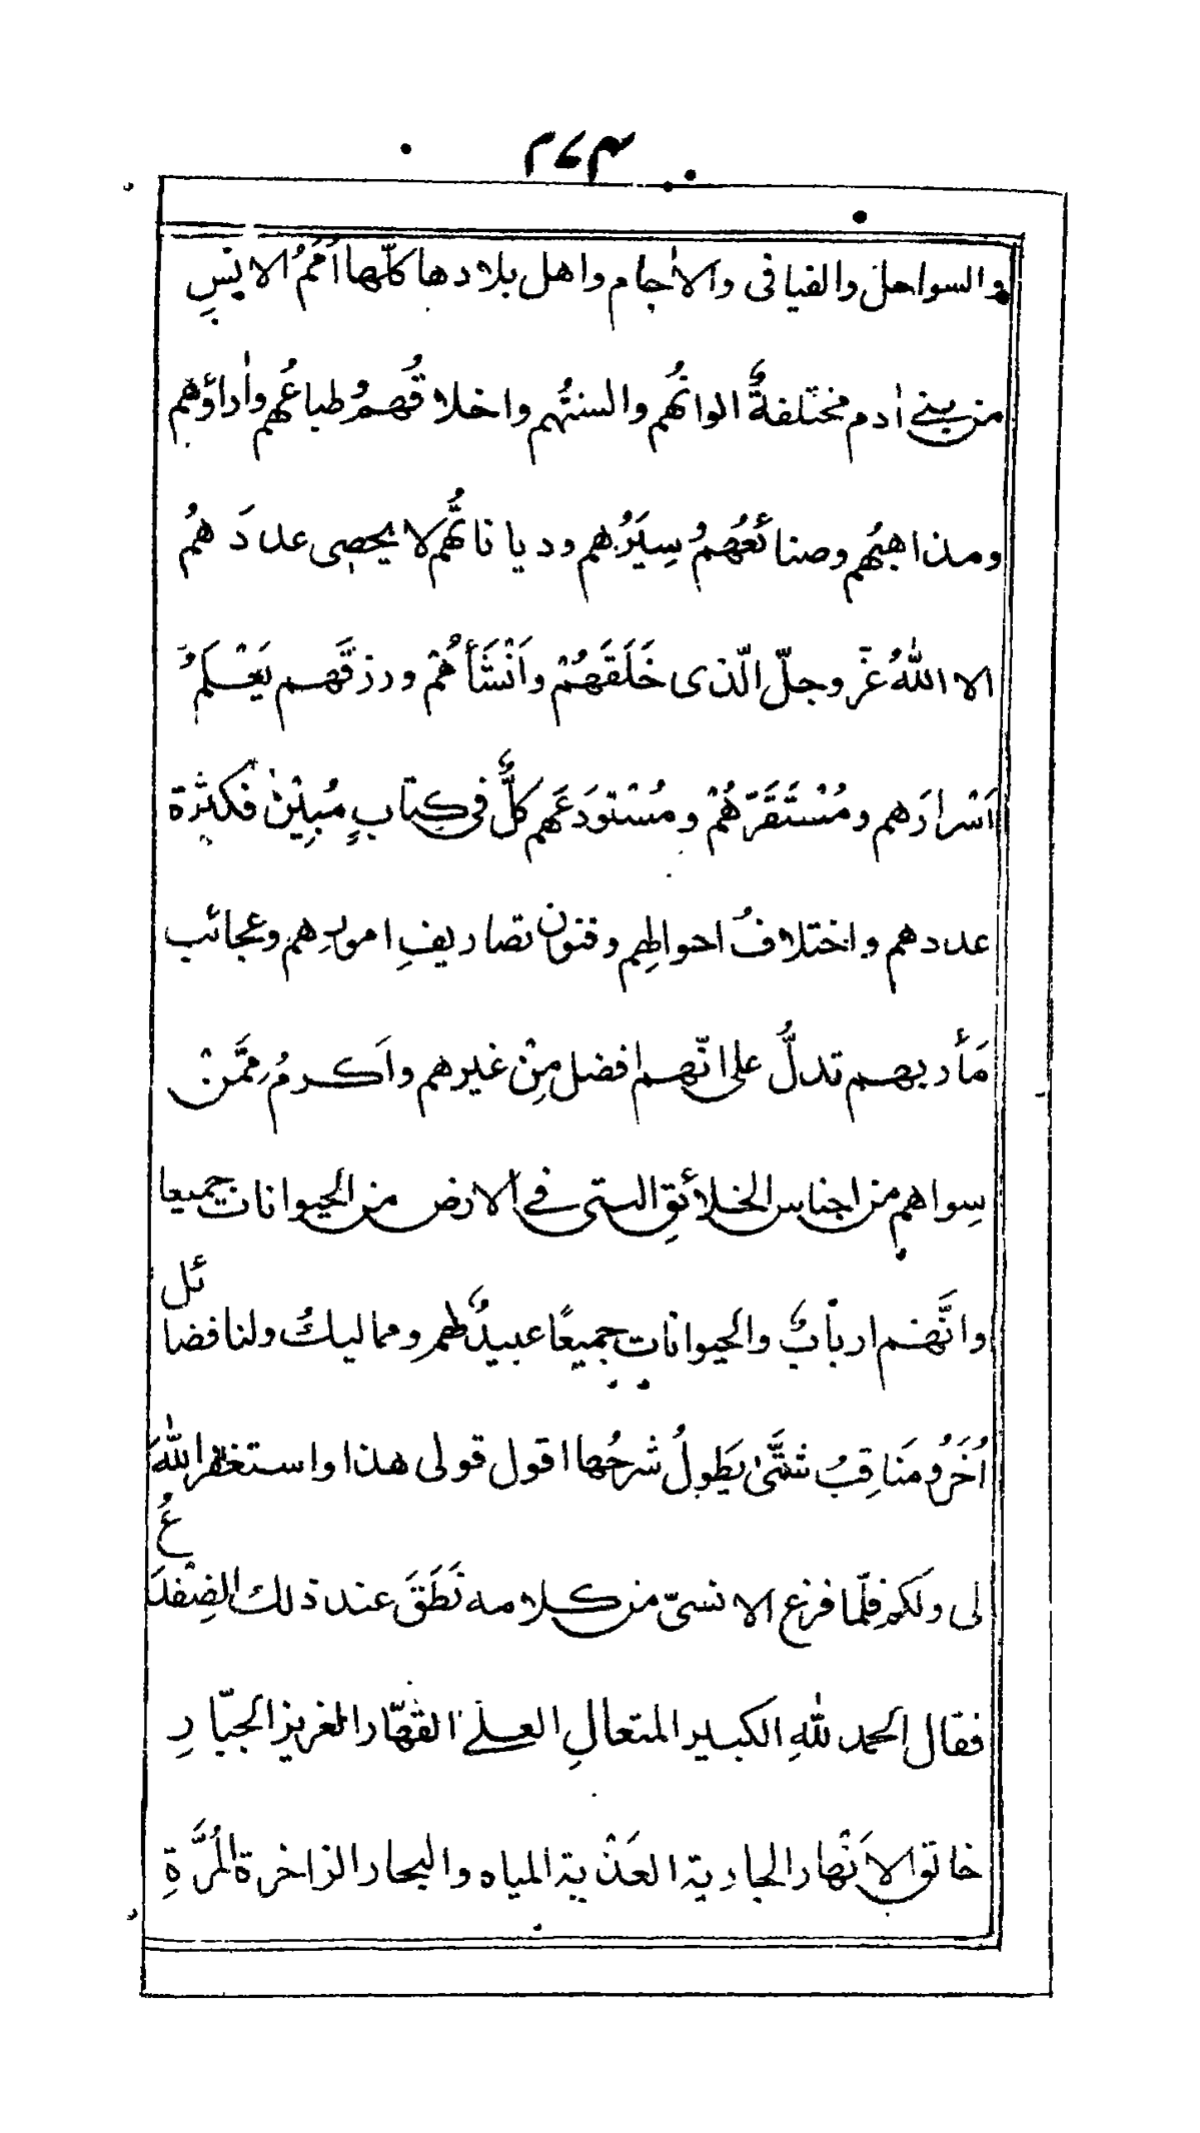 ٢٧٣
والسواحل والفيافى والأجام واهل بلادها كلّها اُمَمُ الانسِ
من بنے اٰدم مختلفةٌ الوانُهم والسنتُهم واخلاقُهم وُطباعُهم واٰراؤهم
ومذاهبُهم وصنائعُهم وُسِيَرُهم ودياناتُهم لا يحصى عددَهمُ
الا اللهُ عَزّ وجلّ الّذى خَلَقَهُمْ واَنْشَأَهُمْ ورزقَهم يَعْلَمُ
اَسْرارَهم ومُسْتَقَرّهُمْ ومُسْتودَعَهم كلٌّ فى كِتابٍ مُبِيْنٍ فكثرة
عددهم واختلافُ احوالِهم وفنون تصاريفِ امورِهم وعجائب
مَأربهم تدلُّ على انّهم افضل مِنْ غيرهم واَكرمُ مِمَّنْ
سِواهم من اجناس الخلائقِ التى فے الارض من الحيوانات جميعا
وانَّهم اربابٌ والحيوانات جميعًا عبيدٌ لهم ومماليكُ ولنا فضائل
اُخَرُ ومَنَاقِبُ شتَّىٰ يَطولُ شرحُها اقول قولى هذا واستغفر اللهَ
لى ولكم فلمّا فرغ الانسىّ من كلامه نَطَقَ عند ذلك الضِفْدَعُ
فقال الحمد للهِ الكبير المتعالِ العلے القهّار العزيز الجبّارِ
خالق الاَنْهار الجارية العَذْبة المياه والبحار الزاخرة المُرَّةِ